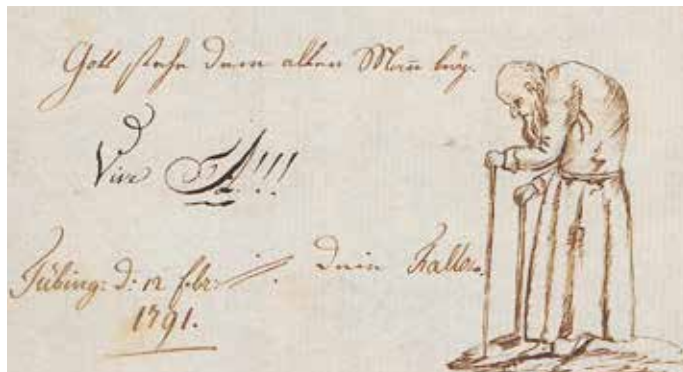 Gott stehe dem alten Man̄ bey.
Vive A!!!
Tübing: d: 12 febr: dein Fallot.
1791.